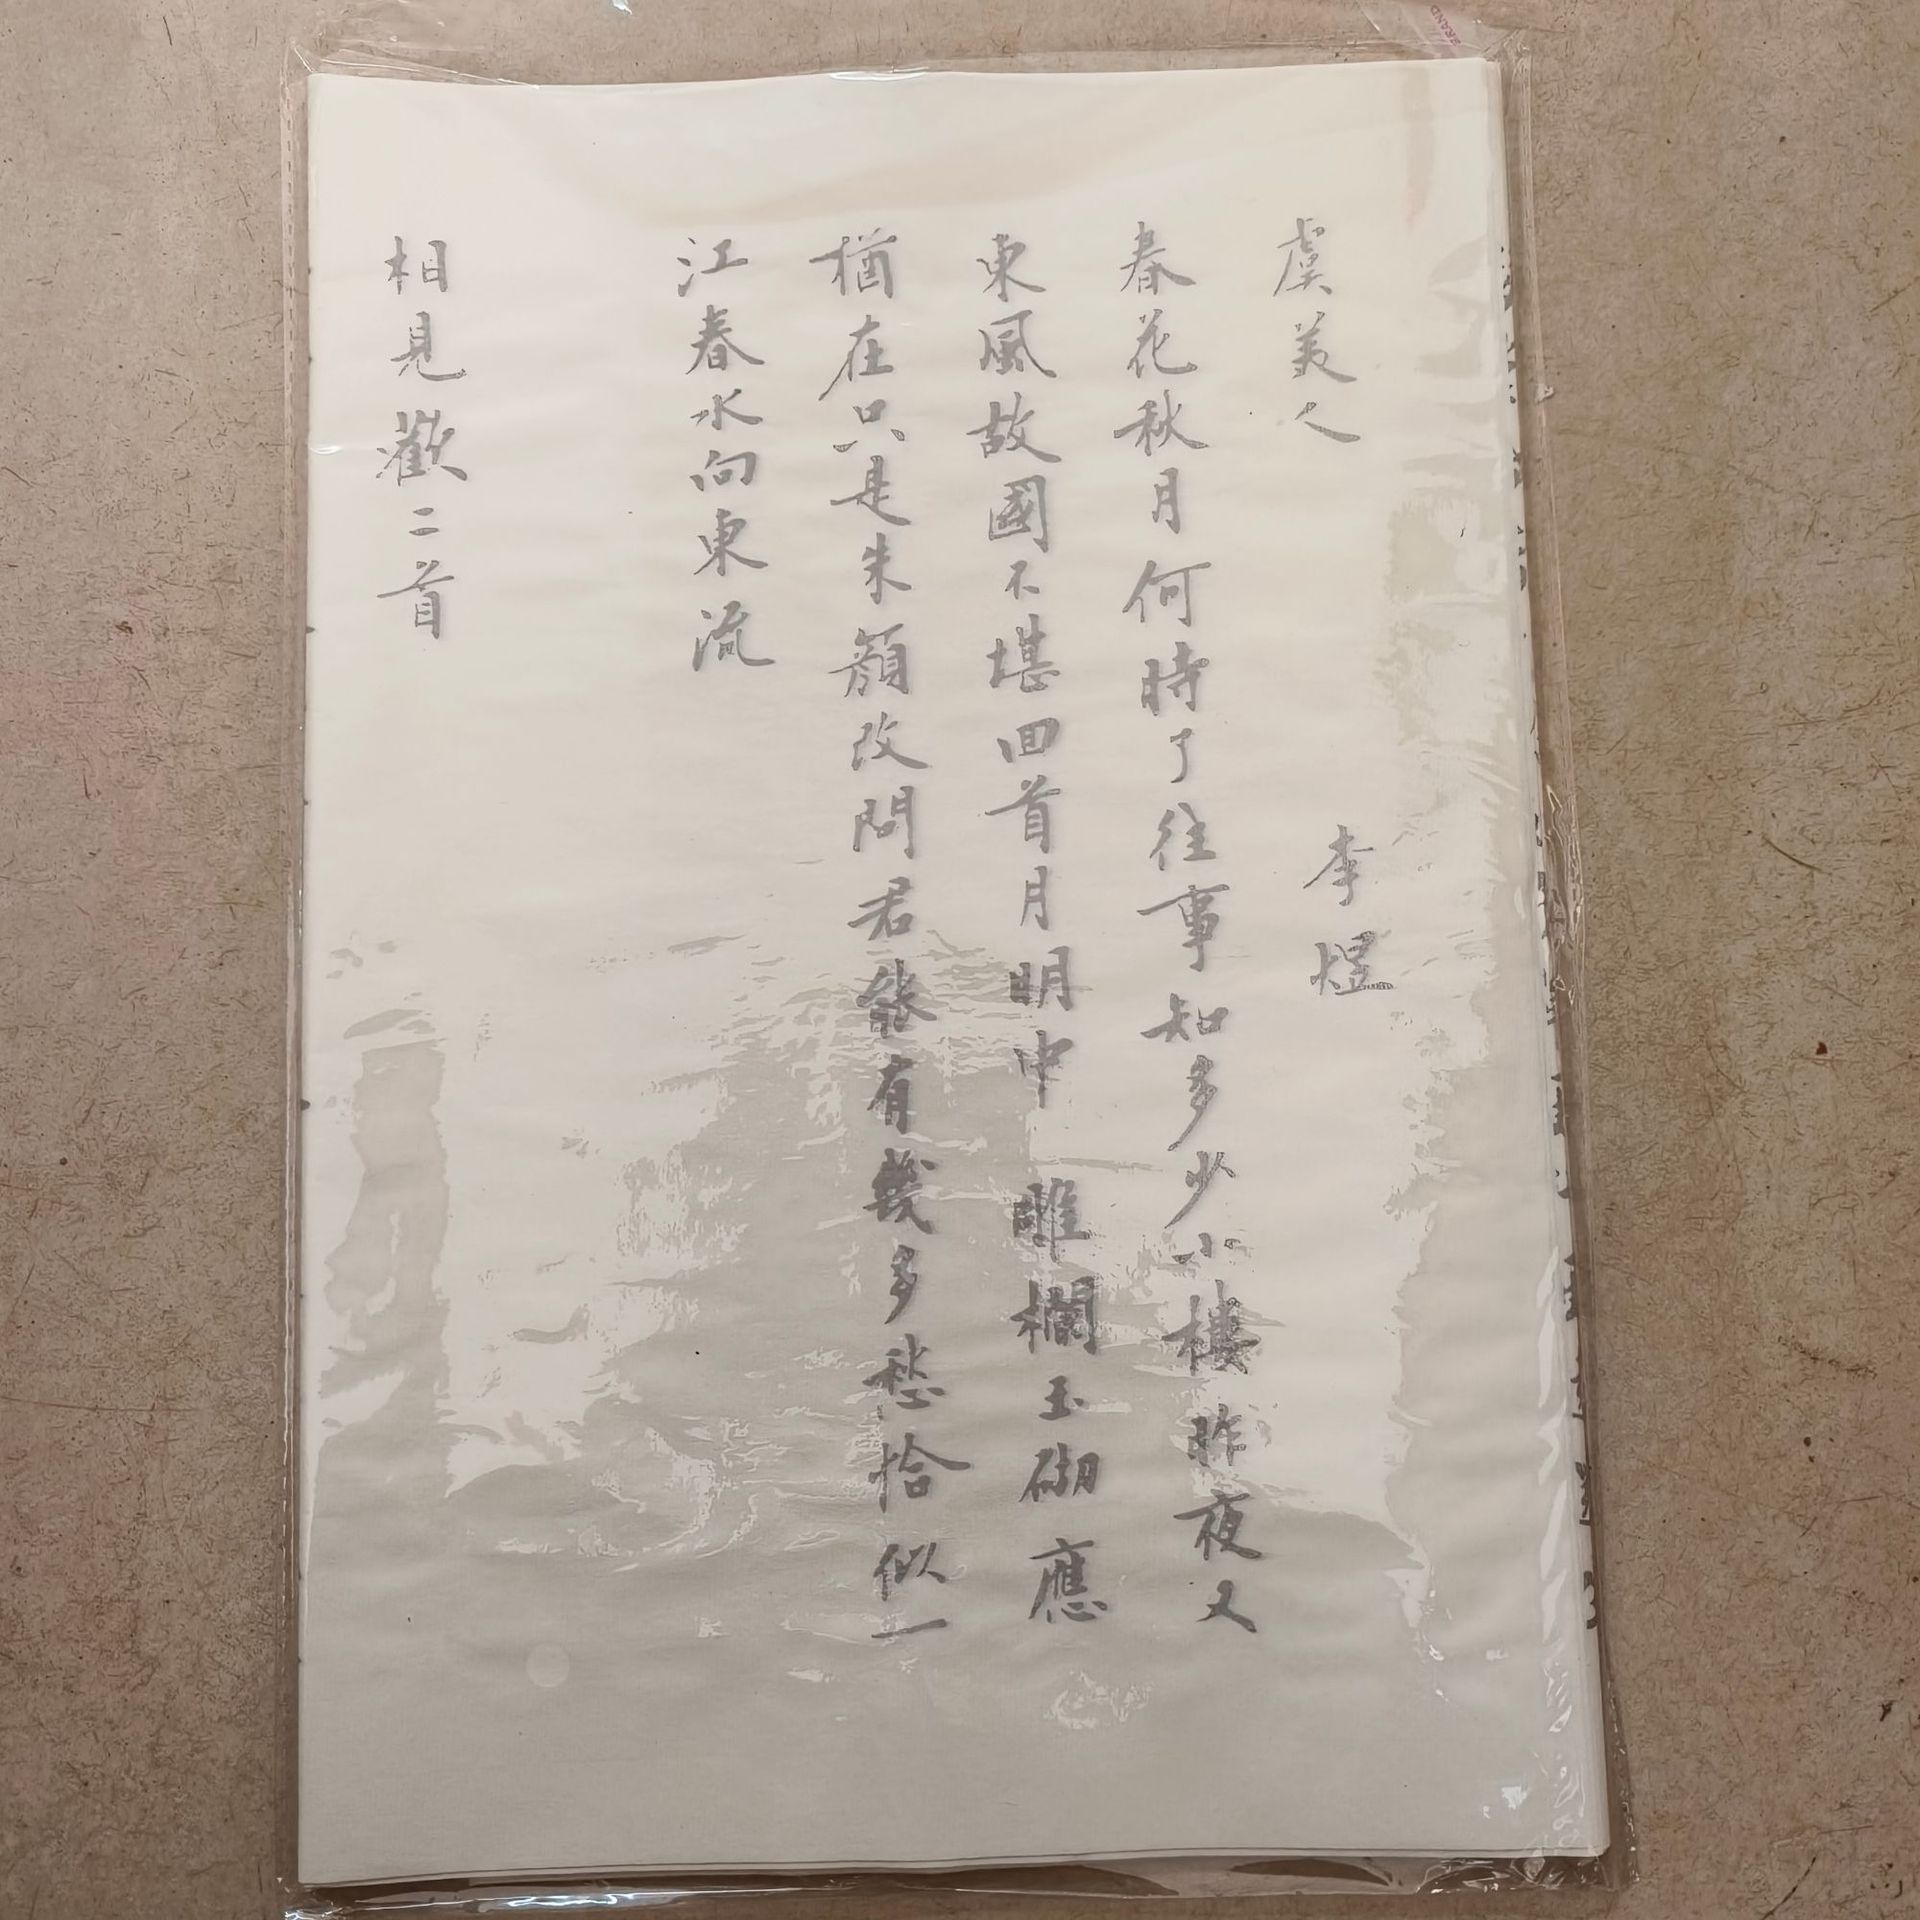 虞美人 李煜
春花秋月何時了往事知多少小樓昨夜又
東風故國不堪回首月明中雕欄玉砌應
猶在只是朱顏改問君能有幾多愁恰似一
江春水向東流
相見歡二首
BRAND